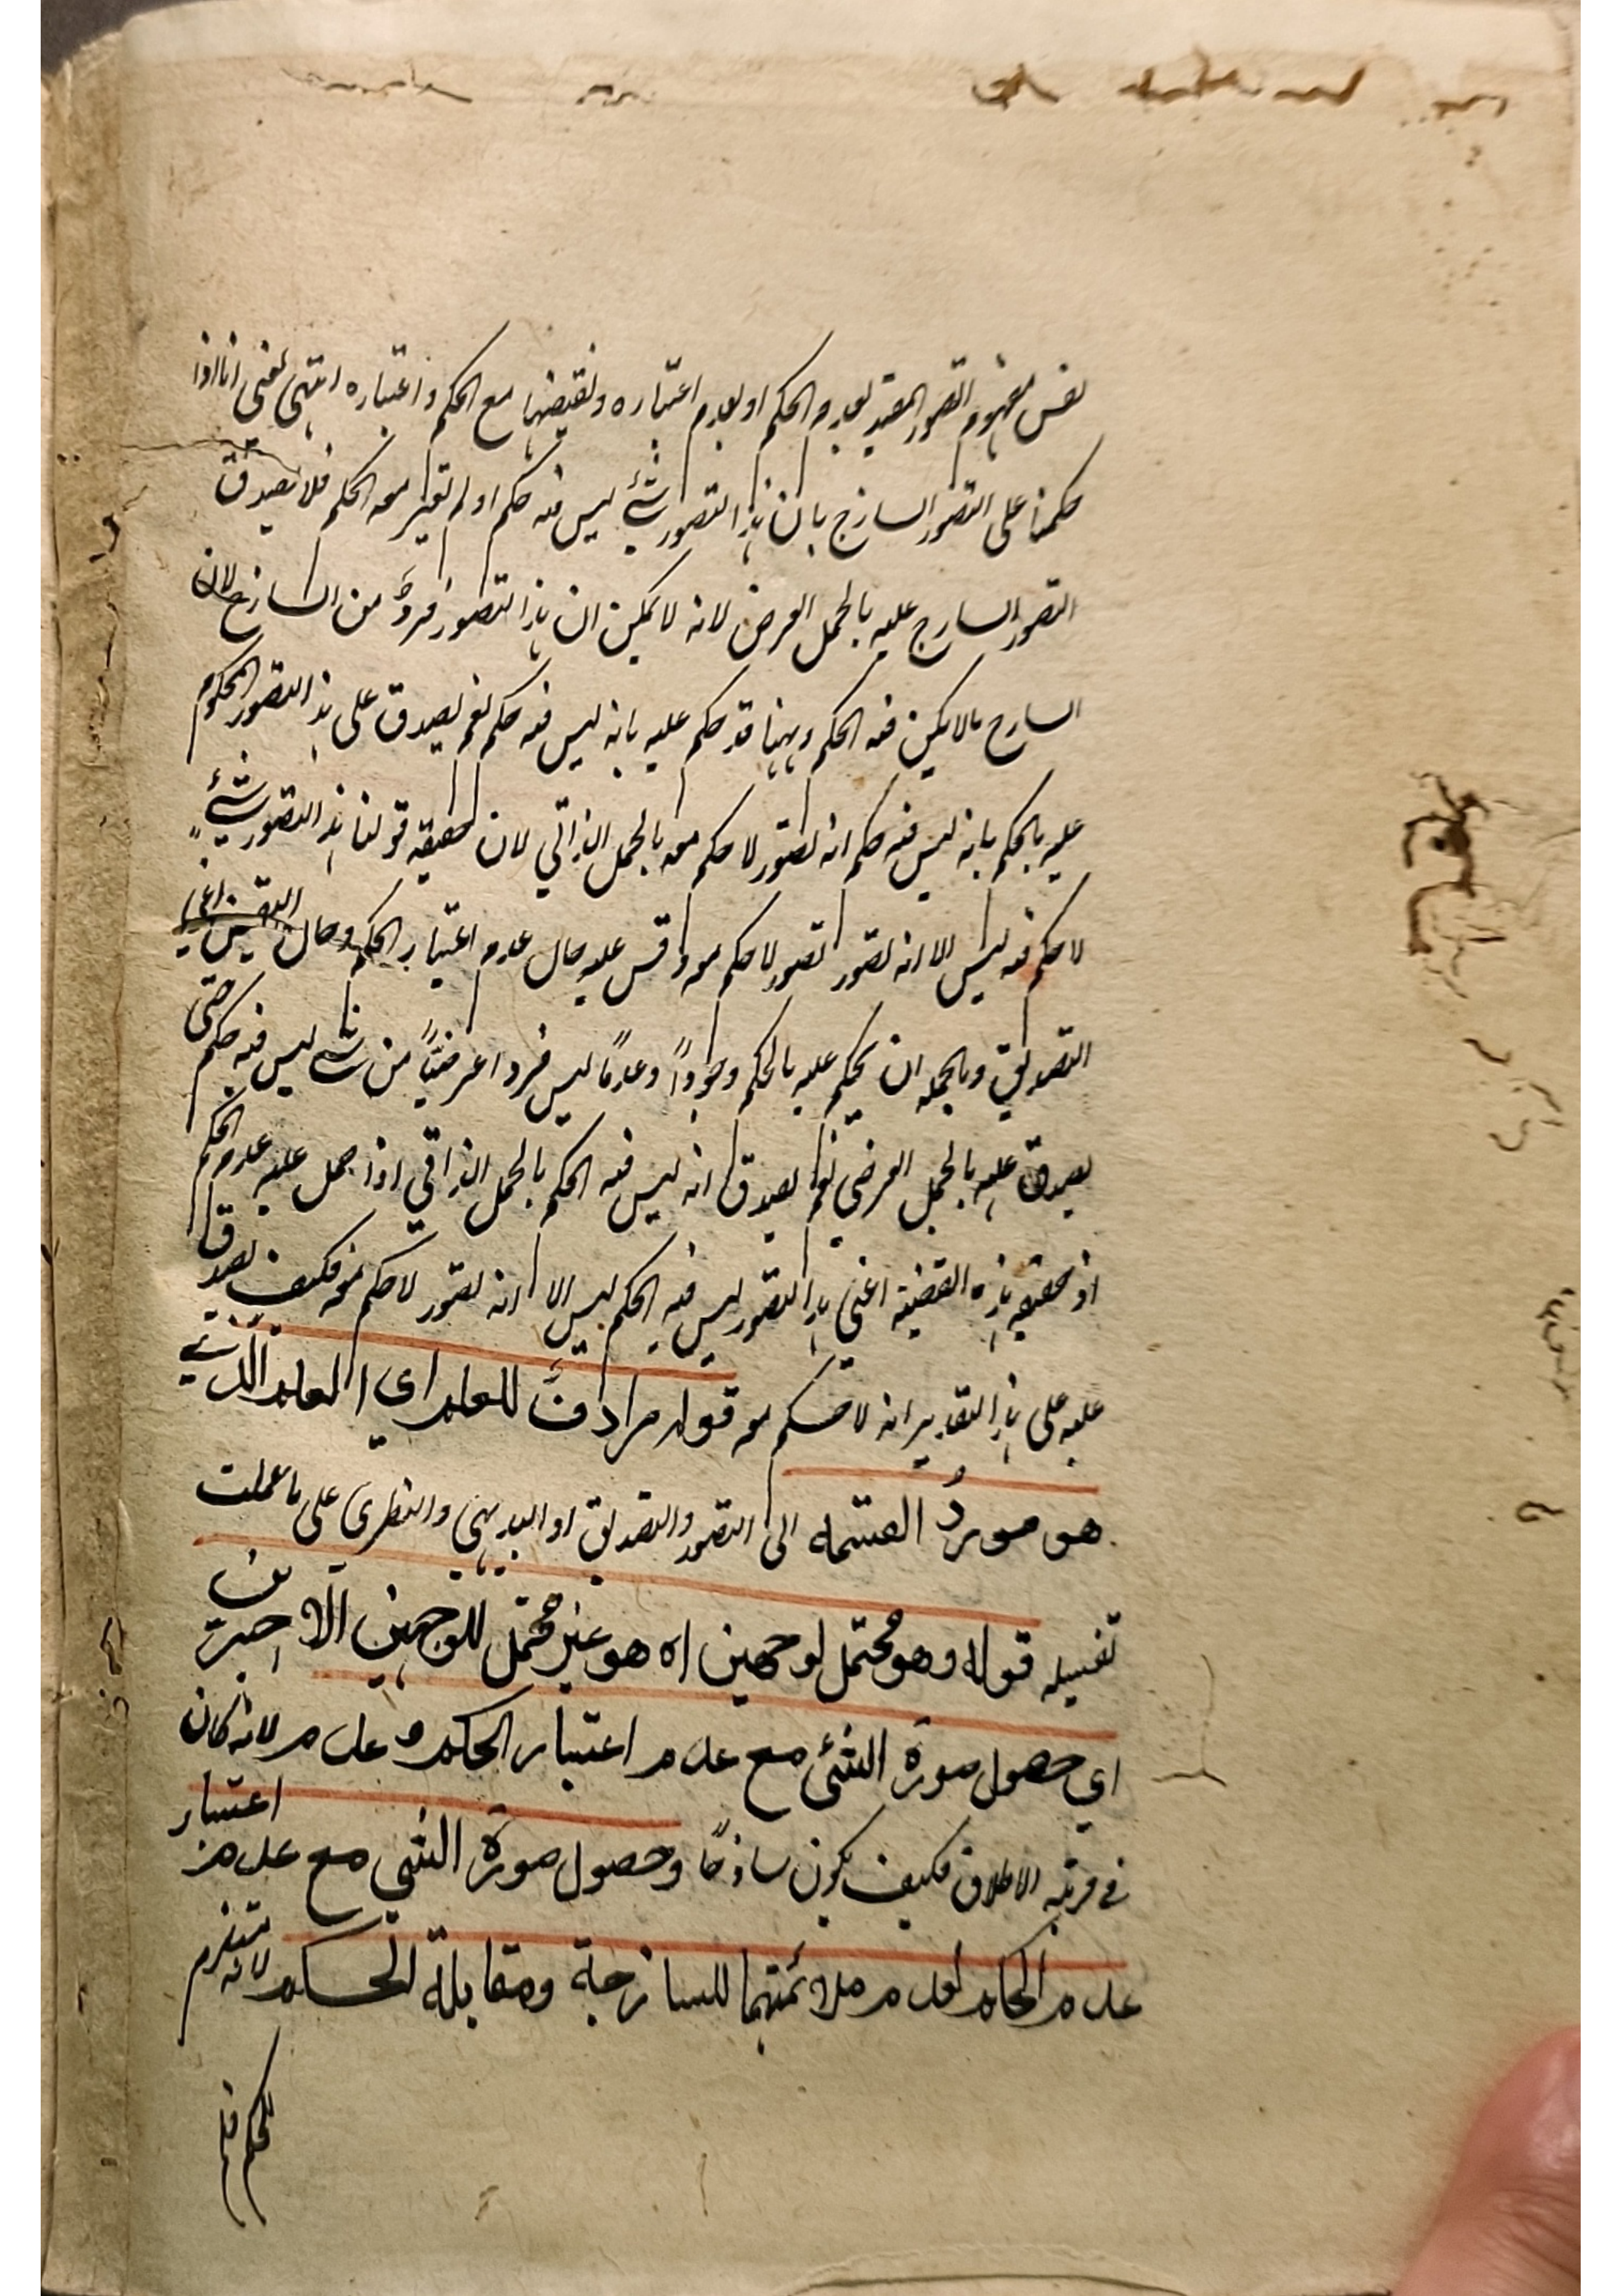 نفس مفهوم التصور المقيد بعدم الحكم او بعدم اعتباره ونقيضها مع الحكم واعتباره انتهى يعني انا اذا
حكمنا على التصور الساذج بان هذا التصور شيء ليس فيه حكم او لم يعتبر معه الحكم فلا يصدق
التصور الساذج عليه بالحمل العرضي لانه لا يمكن ان هذا التصور فرد من الساذج لان
الساذج مالا يمكن فيه الحكم وههنا قد حكم عليه بانه ليس فيه حكم نعم يصدق على هذا التصور المحكوم
عليه بالحكم بانه ليس فيه حكم انه تصور لا حكم معه بالحمل الذاتي لان حقيقة قولنا هذا التصور شيء
لا حكم فيه ليس الا انه تصور تصور لا حكم معه وقس عليه حال عدم اعتبار الحكم وحال النقيض اعني
التصديق وبالجملة ان يحكم عليه بالحكم وجوداً وعدماً ليس فردا عرضيّاً من شيء ليس فيه حكم حتى
يصدق عليه بالحمل العرضي نعم يصدق انه ليس فيه الحكم بالحمل الذاتي اذا حمل عليه عدم الحكم
اذ حقيقة هذه القضية اعني هذا التصور ليس فيه الحكم ليس الا انه تصور لا حكم معه فكيف يصدق
عليه على هذا التقدير انه لا حكم معه قوله مرادف للعلم اي العلم الذي
هو مورد القسمة الى التصور والتصديق او البديهي والنظري على ما عملت
تفصيله قوله وهو محتمل لوجهين اه هو غير محتمل للوجهين الاخيرين
اي حصول صورة الشئ مع عدم اعتبار الحكم وعدمه لانه كان
في مرتبة الاطلاق فكيف يكون ساذجاً وحصول صورة الشئ مع عدم اعتبار
عدم الحكم لعدم ملائمتهما للساذجية ومقابلة الحكم لانه يستلزم
للحكم فلم